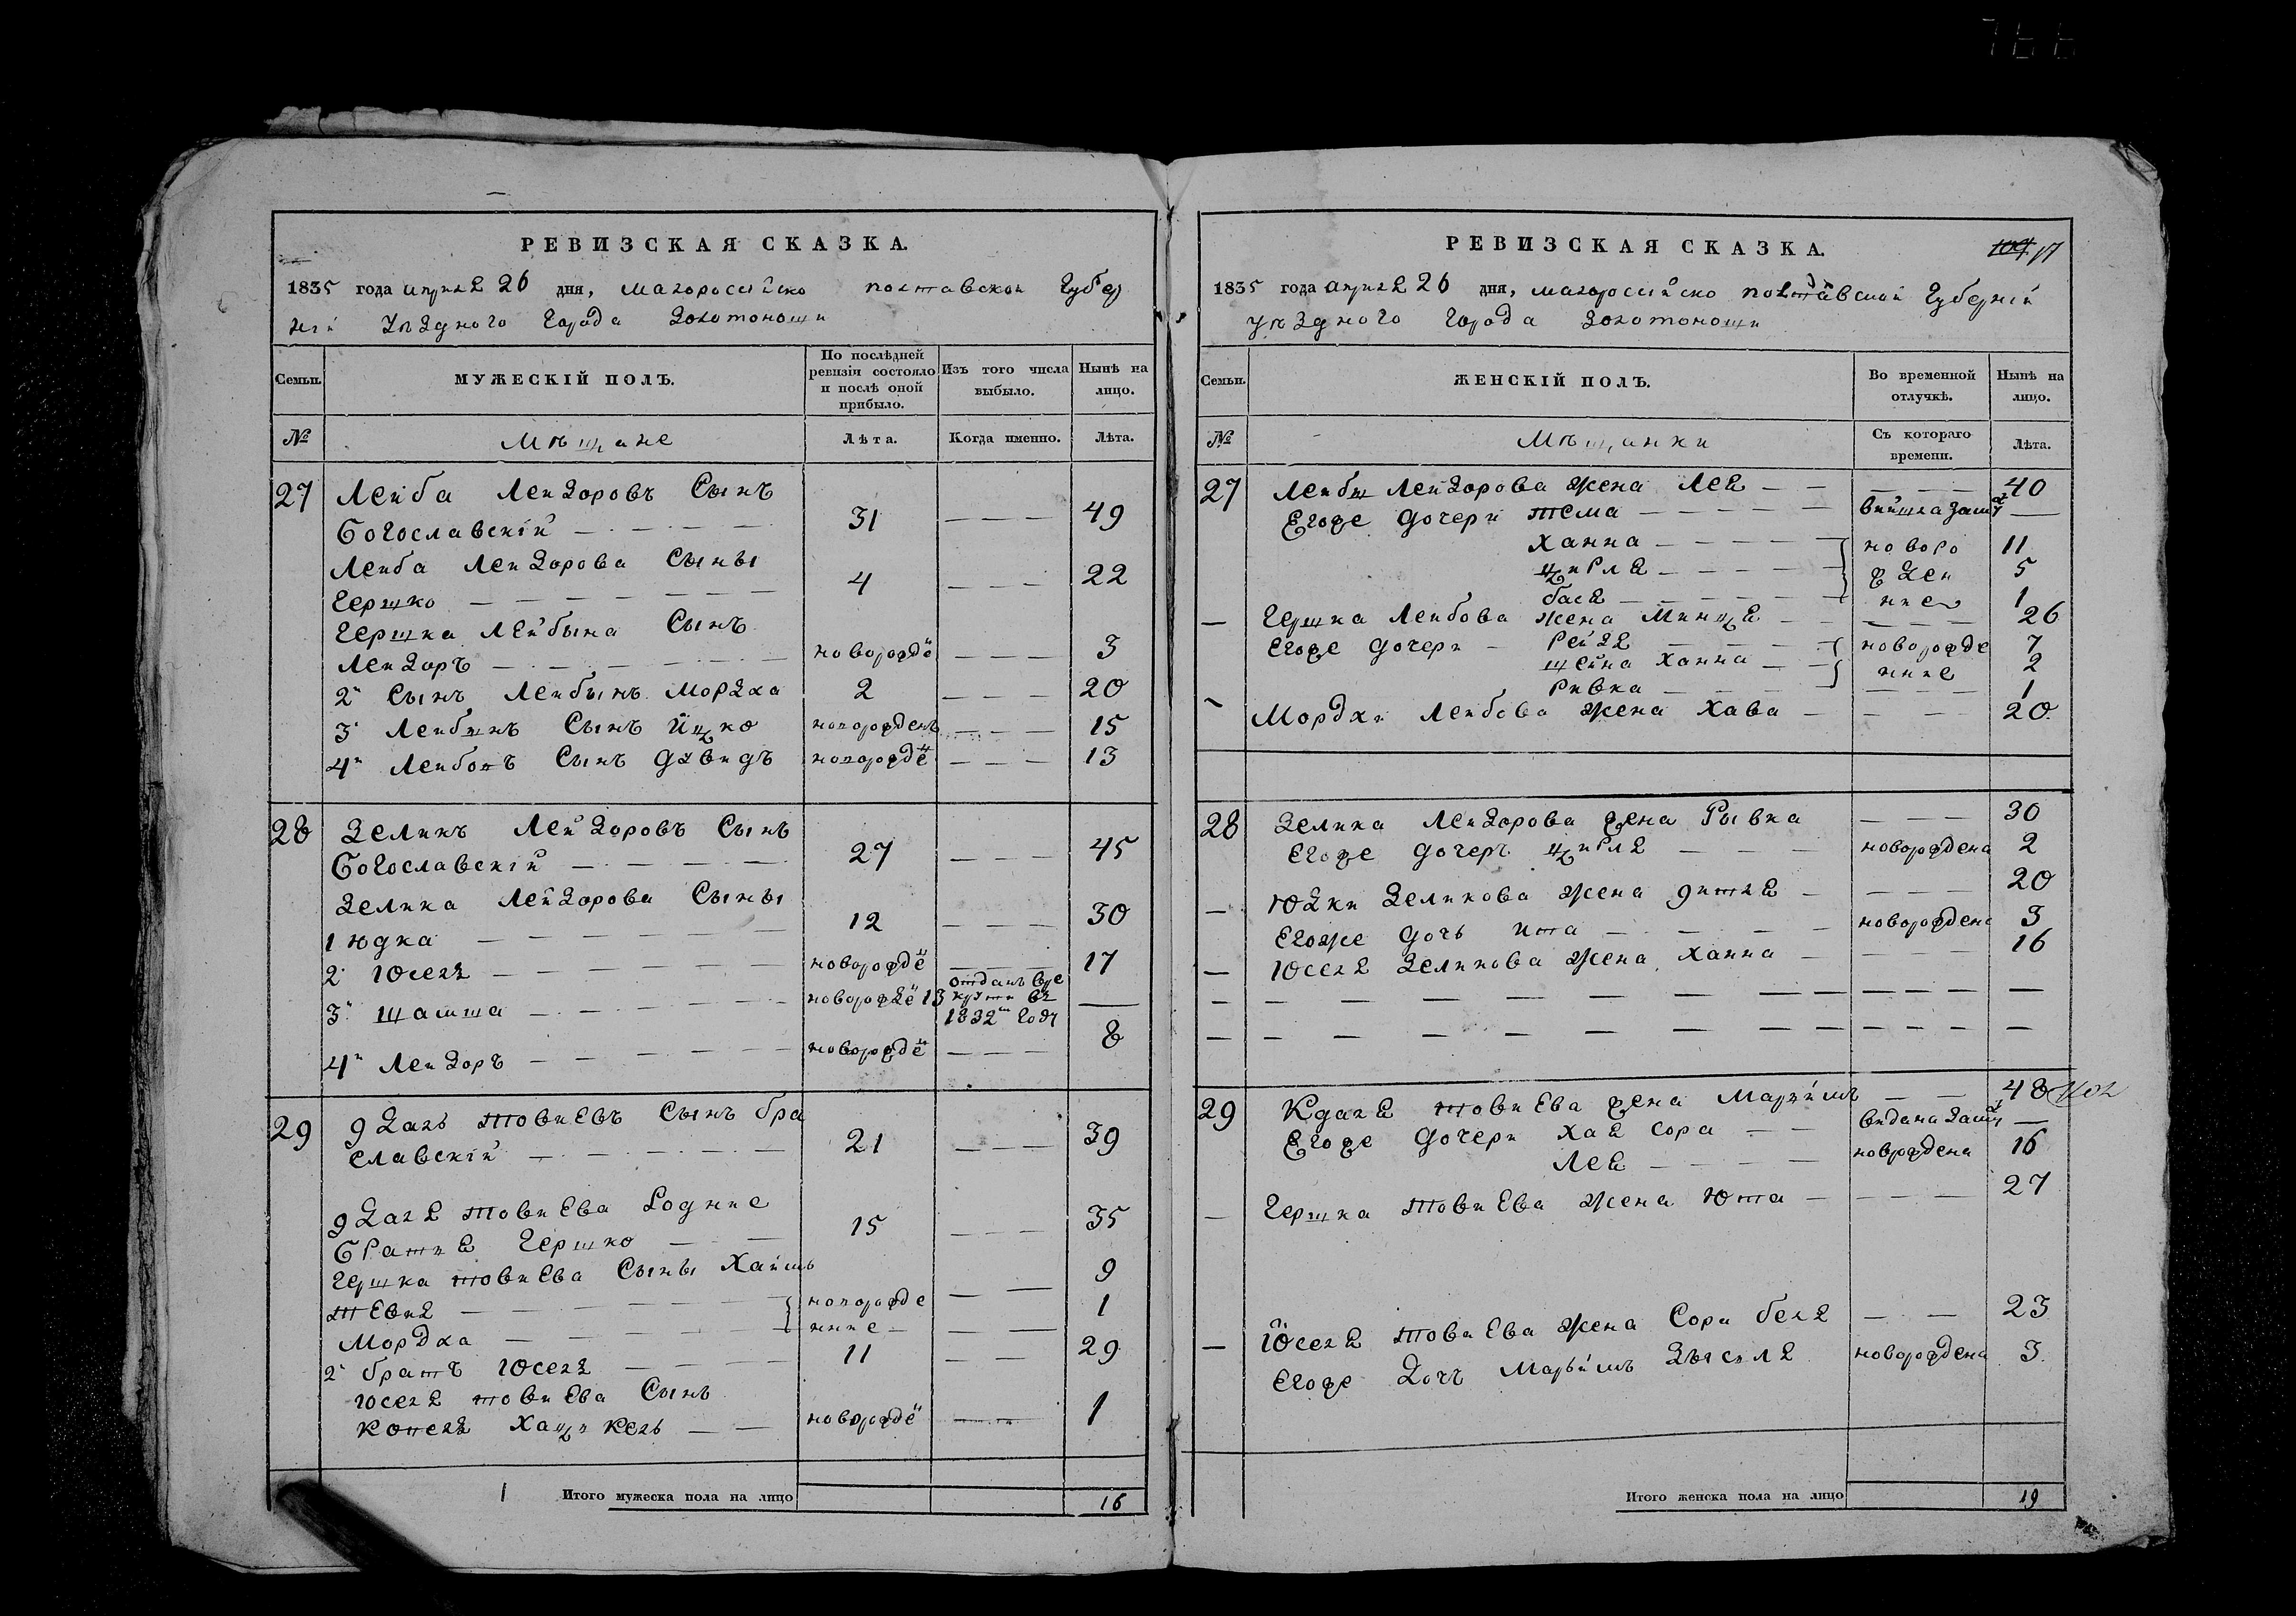 РЕВИЗСКАЯ СКАЗКА.
1835 года апреля 26 дня, малоросийско полтавской Губер
ніи уѣздного Города Золотоноши
Семьи. МУЖЕСКІЙ ПОЛЪ. По послѣдней ревизіи состояло и послѣ оной прибыло. Изъ того числа выбыло. Нынѣ на лицо.
№ Мѣщане Лѣта. Когда именно. Лѣта.
27 Лейба Лейзоровъ Сынъ
Богославскій 31 49
Лейба Лейзорова Сыны
Гершко 4 22
Гершка Лейбына Сынъ
Лейзоръ новорожде 3
2й Сынъ Лейбынъ Мордха 2 20
3й Лейбынъ Сынъ Ицко новорожденъ 15
4й Лейбовъ Сынъ давидъ новорожде 13
28 Зеликъ Лейзоровъ Сынъ
Богославскій 27 45
Зелика Лейзорова Сыны
1 юдка 12 30
2й Юсель новорожде 17
3й шамша новорожде 13 отданъ вре круты въ 1832м Году
4й Лейзоръ новорожде 8
29 Эзаль товиевъ Сынъ бра
славскій 21 39
Эзаля товиева Родние
братия Гершко 15 35
Гершка товиева Сыны Хаимъ 9
тевия новорожде 1
Мордха ние
2й братъ Юсель 11 29
Юселя товиева Сынъ
Копель Хацкель новорожде 1
1 Итого мужеска пола на лицо 16
РЕВИЗСКАЯ СКАЗКА. 17
1835 года апреля 26 дня, малоросийско полтавской Губерніи
уѣздного Города Золотоноши
Семьи. ЖЕНСКІЙ ПОЛЪ. Во временной отлучкѣ. Нынѣ на лицо.
№ Мѣщанки Съ котораго времени. Лѣта.
27 Лейбы Лейзорова жена Лея 40
Егоже дочери тема выйшла замуж
Ханна новоро 11
цирля жден 5
бася ние 1
Гершка Лейбова жена Минця 26
Егоже дочери Рейзя новорожде 7
шейна Ханна ниие 2
Ривка 1
Мордхи Лейбова жена Хава 20
28 Зелика Лейзорова жена Рывка 30
Егоже дочеръ цирля новорождена 2
Юдки Зеликова жена Эитля 20
Егоже дочь ита новорождена 3
Юселя Зеликова жена Ханна 16
29 товиева жена Марьимъ 48
Егоже дочери Хая сора видана замуж
Лея новрождена 16
Гершка товиева жена Юта 27
Юселя товиева жена Сора беля 23
Егоже дочь Марьимъ новорождена 3
Итого женска пола на лицо 19